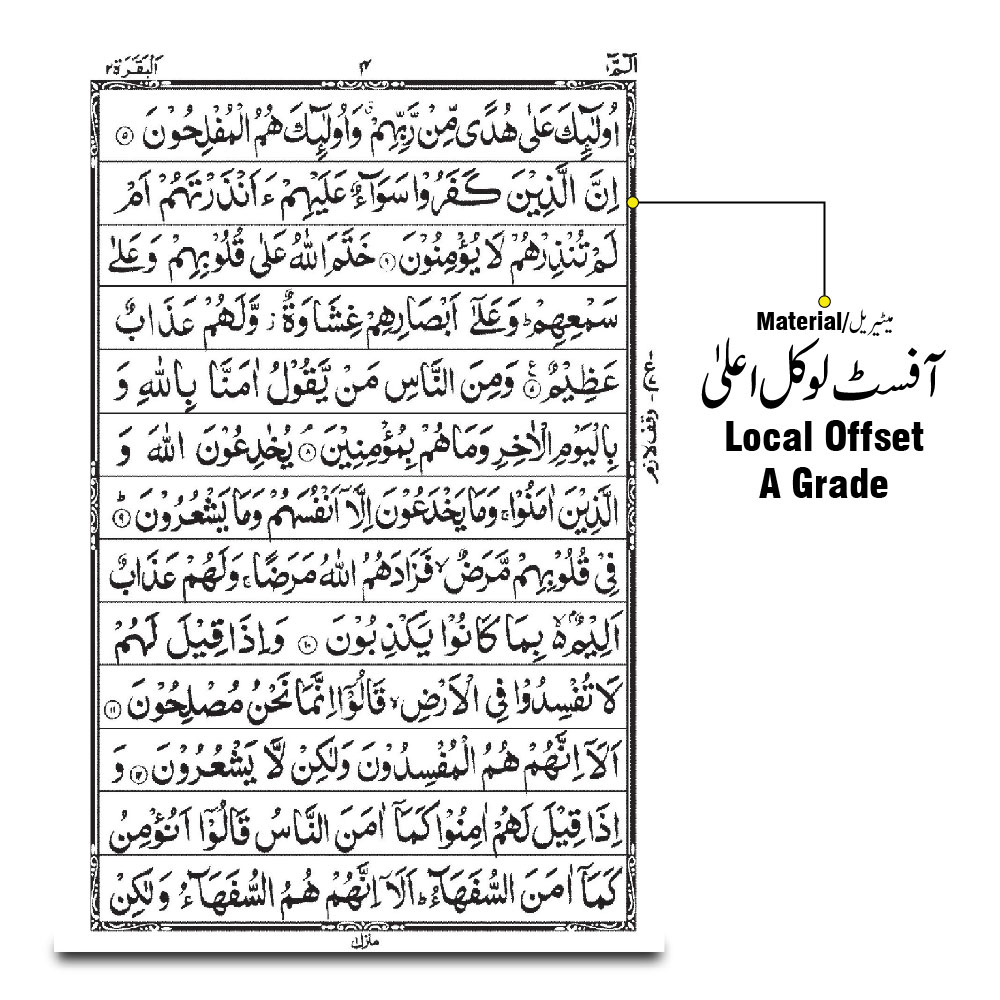 الٓمّٓ ۱
۴
اَلْبَقَرَة ۲
اُولٰٓئِكَ عَلٰى هُدًى مِّنْ رَّبِّهِمْ ۙ وَاُولٰٓئِكَ هُمُ الْمُفْلِحُوْنَ ۵
اِنَّ الَّذِيْنَ كَفَرُوْا سَوَآءٌ عَلَيْهِمْ ءَاَنْذَرْتَهُمْ اَمْ
لَمْ تُنْذِرْهُمْ لَا يُؤْمِنُوْنَ ۶ خَتَمَ اللّٰهُ عَلٰى قُلُوْبِهِمْ وَعَلٰى
سَمْعِهِمْ ؕ وَعَلٰٓى اَبْصَارِهِمْ غِشَاوَةٌ ز وَّلَهُمْ عَذَابٌ
عَظِيْمٌ ۷ وَمِنَ النَّاسِ مَنْ يَّقُوْلُ اٰمَنَّا بِاللّٰهِ وَ
بِالْيَوْمِ الْاٰخِرِ وَمَا هُمْ بِمُؤْمِنِيْنَ ۸ يُخٰدِعُوْنَ اللّٰهَ وَ
الَّذِيْنَ اٰمَنُوْا ۚ وَمَا يَخْدَعُوْنَ اِلَّآ اَنْفُسَهُمْ وَمَا يَشْعُرُوْنَ ۹ ؕ
فِيْ قُلُوْبِهِمْ مَّرَضٌ ۙ فَزَادَهُمُ اللّٰهُ مَرَضًا ۚ وَلَهُمْ عَذَابٌ
اَلِيْمٌ ۙ۬ بِمَا كَانُوْا يَكْذِبُوْنَ ۱۰ وَاِذَا قِيْلَ لَهُمْ
لَا تُفْسِدُوْا فِى الْاَرْضِ ۙ قَالُوْٓا اِنَّمَا نَحْنُ مُصْلِحُوْنَ ۱۱
اَلَآ اِنَّهُمْ هُمُ الْمُفْسِدُوْنَ وَلٰكِنْ لَّا يَشْعُرُوْنَ ۱۲ وَ
اِذَا قِيْلَ لَهُمْ اٰمِنُوْا كَمَآ اٰمَنَ النَّاسُ قَالُوْٓا اَنُؤْمِنُ
كَمَآ اٰمَنَ السُّفَهَآءُ ؕ اَلَآ اِنَّهُمْ هُمُ السُّفَهَآءُ وَلٰكِنْ
وقف لازم
Material/میٹیریل
آفسٹ لوکل اعلیٰ
Local Offset
A Grade